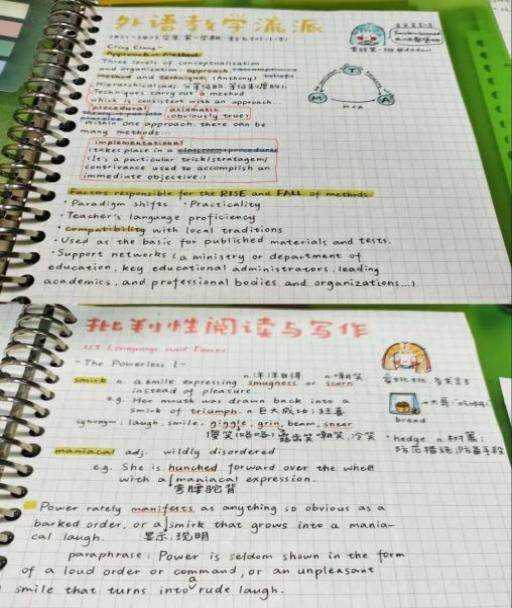 外语教学流派
Approach & Method
Three levels of conceptualization
and organization: approach
method and technique (Anthony) beliefs
Hierarchical adj. 分等级的,等级制度的
Techniques carry out a method
which is consistent with an approach...
procedural axiomatic
(obviously true)
Within one approach there can be
many methods...
implementational
(takes place in a classroom procedure)
(It's a particular trick/stratagem/
contrivance used to accomplish an
immediate objective.)
T
M
A
Factors responsible for the RISE and FALL of methods.
· Paradigm shifts · Practicality
· Teacher's language proficiency
· compatibility with local traditions
· Used as the basic for published materials and tests.
· Support networks (a ministry or department of
education, key educational administrators, leading
academics, and professional bodies and organizations...)
批判性阅读与写作
U3 Language and Power
- The Powerless I -
n.洋洋自得 n.嘲笑
smirk n. a smile expressing smugness or scorn
instead of pleasure.
e.g. Her mouth was drawn back into a
smirk of triumph. n.巨大成功;狂喜
synonym: laugh, smile, giggle, grin, beam, sneer
傻笑(咯咯) 露齿笑 嘲笑,冷笑
maniacal adj. wildly disordered
e.g. She is hunched forward over the wheel
with a maniacal expression.
弯腰驼背
bread
· hedge n.树篱;
防范措施,防着手段
Power rarely manifests as anything so obvious as a
barked order, or a smirk that grows into a mania-
cal laugh. 显示,现明
paraphrase: Power is seldom shown in the form
of a loud order or command, or an unpleasant
smile that turns into a rude laugh.